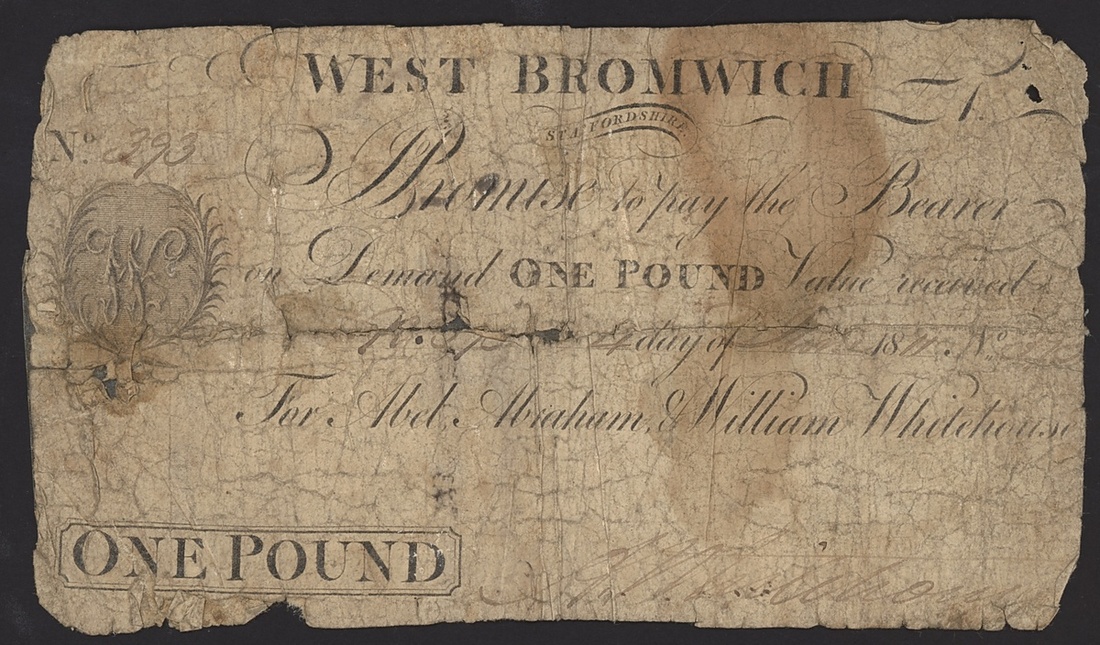 WEST BROMWICH
1.
STAFFORDSHIRE
No. 393
Promise to pay the Bearer
on Demand ONE POUND Value received
day of 18 No.
For Abel, Abraham, & William Whitehouse
W
ONE POUND